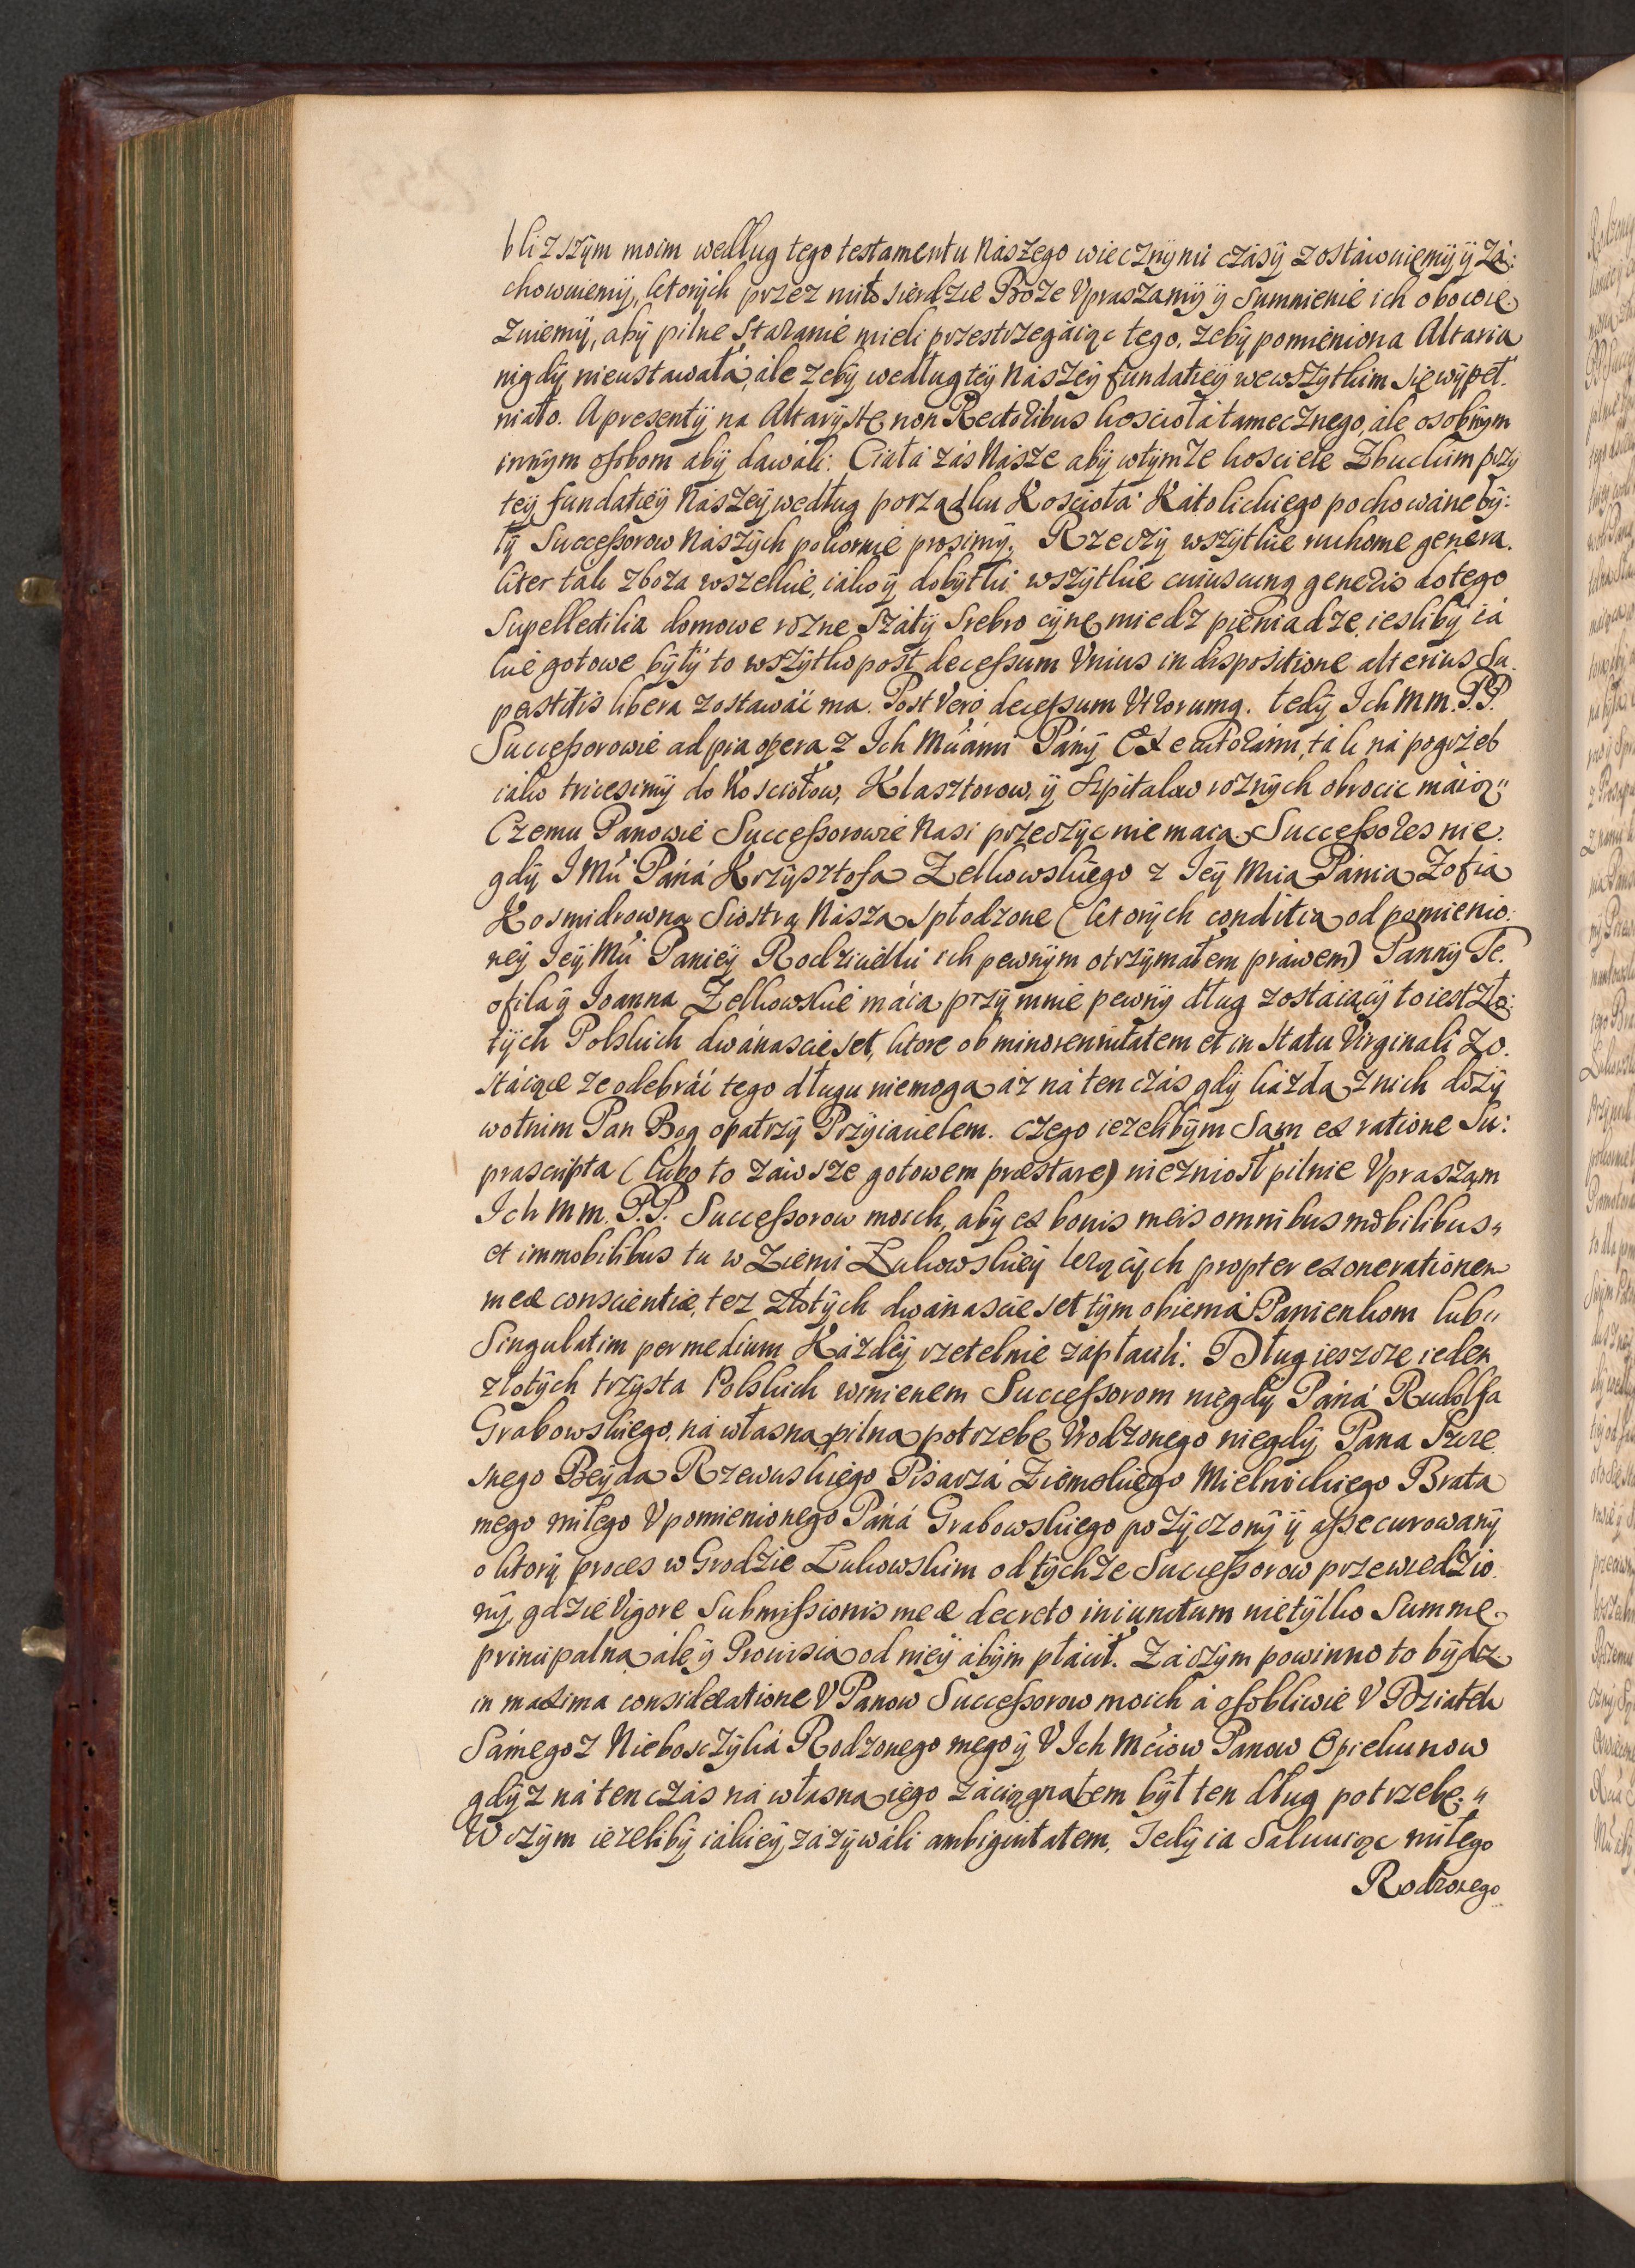 bliższÿm moim według tego testamentu Naszego wiecznÿmi czásÿ zostáwuiemÿ ÿ zá:
chowuiemÿ, ktorÿch przez miłosierdzie Boże Vpraszamÿ ÿ Sumnienie ich obowię
zuiemÿ, abÿ pilne staranie mieli przestrzegáiąc tego, żebÿ pomieniona Altaria
nigdÿ nieustawałá, ále żebÿ według teÿ Nászeÿ fundatieÿ wewszÿtkim się wÿpeł:
niało. A presentÿ na Altarÿstę non Rectoribus koscioła tamecznego, ále osobnÿm
innÿm osobom abÿ dawáli. Ciałá zás Násze abÿ wtÿmże kosciele Zbuckim przÿ
teÿ fundatieÿ Nászeÿ według porządku Koscioła Kátolickiego pochowáne bÿ:
łÿ Successorow Nászÿch pokornie prosimÿ. Rzeczÿ wszÿtkie ruchome genera.
liter tak zboża wszelkie, iáko ÿ dobÿtki wszÿtkie cuiuscunq generis do tego
Supellectilia domowe rożne Szátÿ Srebro cÿnę miedz pieniadze, ieslibÿ iá
kie gotowe bÿłÿ to wszÿtko post decessum Vnius in dispositione alterius Su.
perstitis libera zostawáć ma. Post Verò decessum Vtrorumq. tedÿ Ich mm. P.P.
Successorowie ad pia opera z Ich Mćiámi Pánÿ Executorámi, ták ná pogrzeb
iáko tricesimÿ do Kosciołow, Klasztorow, ÿ Szpitalow rożnÿch obrocic máią„
Czemu Panowie Successorowie Nasi przeczÿc nie maią. Successores nie.
gdÿ IMci Páná Krzÿsztofa Zelkowskiego z Ieÿ Mcią Panią Zofią
Kosmidrowną Siostrą Nászą spłodzone (ktorÿch conditią od pomienio:
neÿ Ieÿ Mci Panieÿ Rodzicielki ich pewnÿm otrzÿmałem práwem) Pannÿ Te.
ofila ÿ Ioanna Zelkowskie máią przÿ mnie pewnÿ dług zostáiącÿ to iest zło:
tÿch Polskich dwánascie set, ktore ob minorennitatem et in Statu Virginali zo.
stáiące że odebráć tego długu niemogą áż ná ten czás gdÿ káżdą z nich dożÿ
wotnim Pan Bog opatrzÿ Przÿiacielem. czego ieżelibÿm Sam ex ratione Su:
prascripta (lubo to záwsze gotowem præstare) nieżniosł pilnie Vpraszam
Ich mm. P.P. Successorow moich, abÿ ex bonis meis omnibus mobilibus„
et immobilibus tu w Ziemi Łukowskieÿ leżącÿch propter exonerationem
meæ conscientiæ, też złotÿch dwánascie set tÿm obiemá Panienkom lub„
Singulatim per medium Káżdeÿ rzetelnie zápłacili. Dług ieszcze ieden
złotÿch trzÿsta Polskich winienem Successorom niegdÿ Páná Rudolfa
Grabowskiego, ná własną pilną potrzebę Vrodzonego niegdÿ Pana Szcze
snego Beÿda Rzewuskiego Pisarzá Ziemskiego Mielnickiego Brata
mego miłego V pomienionego Páná Grabowskiego pożÿczonÿ ÿ assecurowanÿ
o ktorÿ proces w Grodzie Łukowskim od tÿchże Successorow przewiedzio.
nÿ, gdzie Vigore Submissionis meæ decreto iniunctum nietÿlko Summę
principalną ále ÿ Prowisią od nieÿ ábÿm płácił. Záczÿm powinno to bÿdz
in maxima consideratione V Panow Successorow moich á osobliwie V Dziatek
Sámego z Nieboszczÿká Rodzonego mego ÿ V Ich Mćiow Panow Opiekunow
gdÿż ná ten czás ná własną iego záciągnąłem bÿł ten dług potrzebę.„
W czÿm ieżelibÿ iákieÿ záżÿwáli ambiguitatem, Tedÿ ia Saluuiąc miłego
Rodzonego